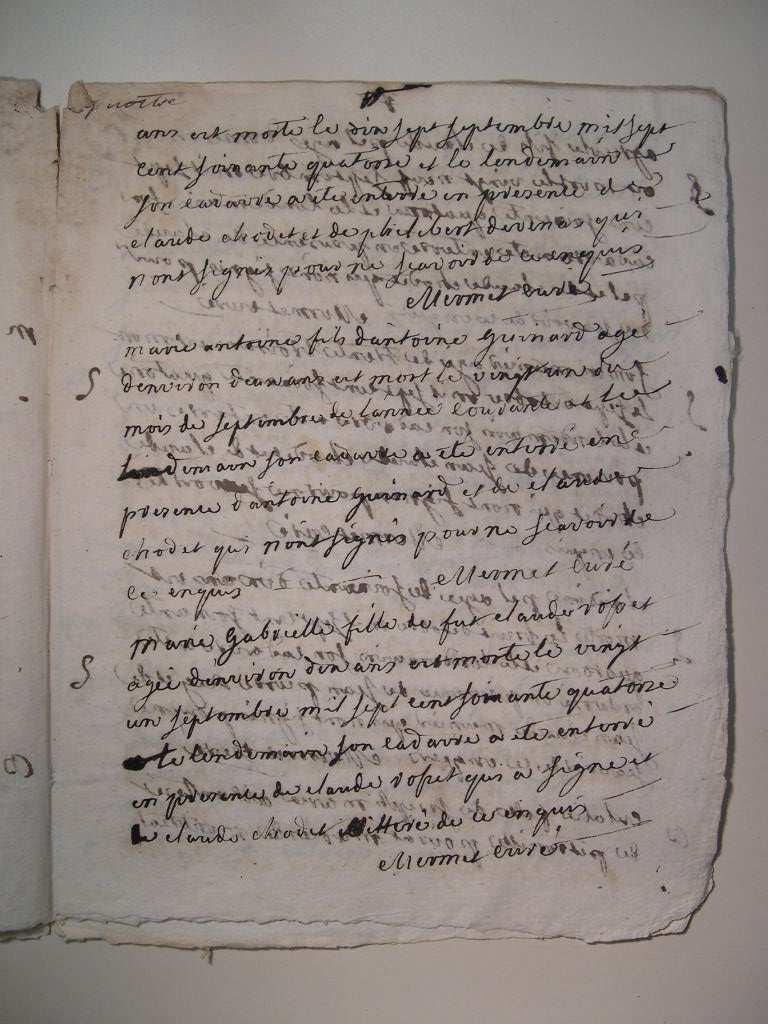 quatre
ans est morte le dix sept septembre mil sept
cent soixante quatorse et le lendemain
son cadavre a ete enterre en presence de
claude chodet et de philibert devenas qui
nont signés pour ne scavoir de ce enquis
Mermet curé
marie antoine fils dantoine Guinard agé
denviron deux ans est mort le vingt un du
mois de septembre de lannee coudante et le
lendemain son cadavre a ete enterré en
presence dantoine Guinard et de claude
chodet qui nont signés pour ne scavoir de
ce enquis Mermet curé
marie Gabrielle fille de fut claude vosset
agée denviron dix ans est morte le vingt
un septembre mil sept cent soixante quatorse
et le lendemain son cadavre a ete enterré
en presence de claude vosset qui a signe et
de claude chodet illitteré de ce enquis
Mermet curé